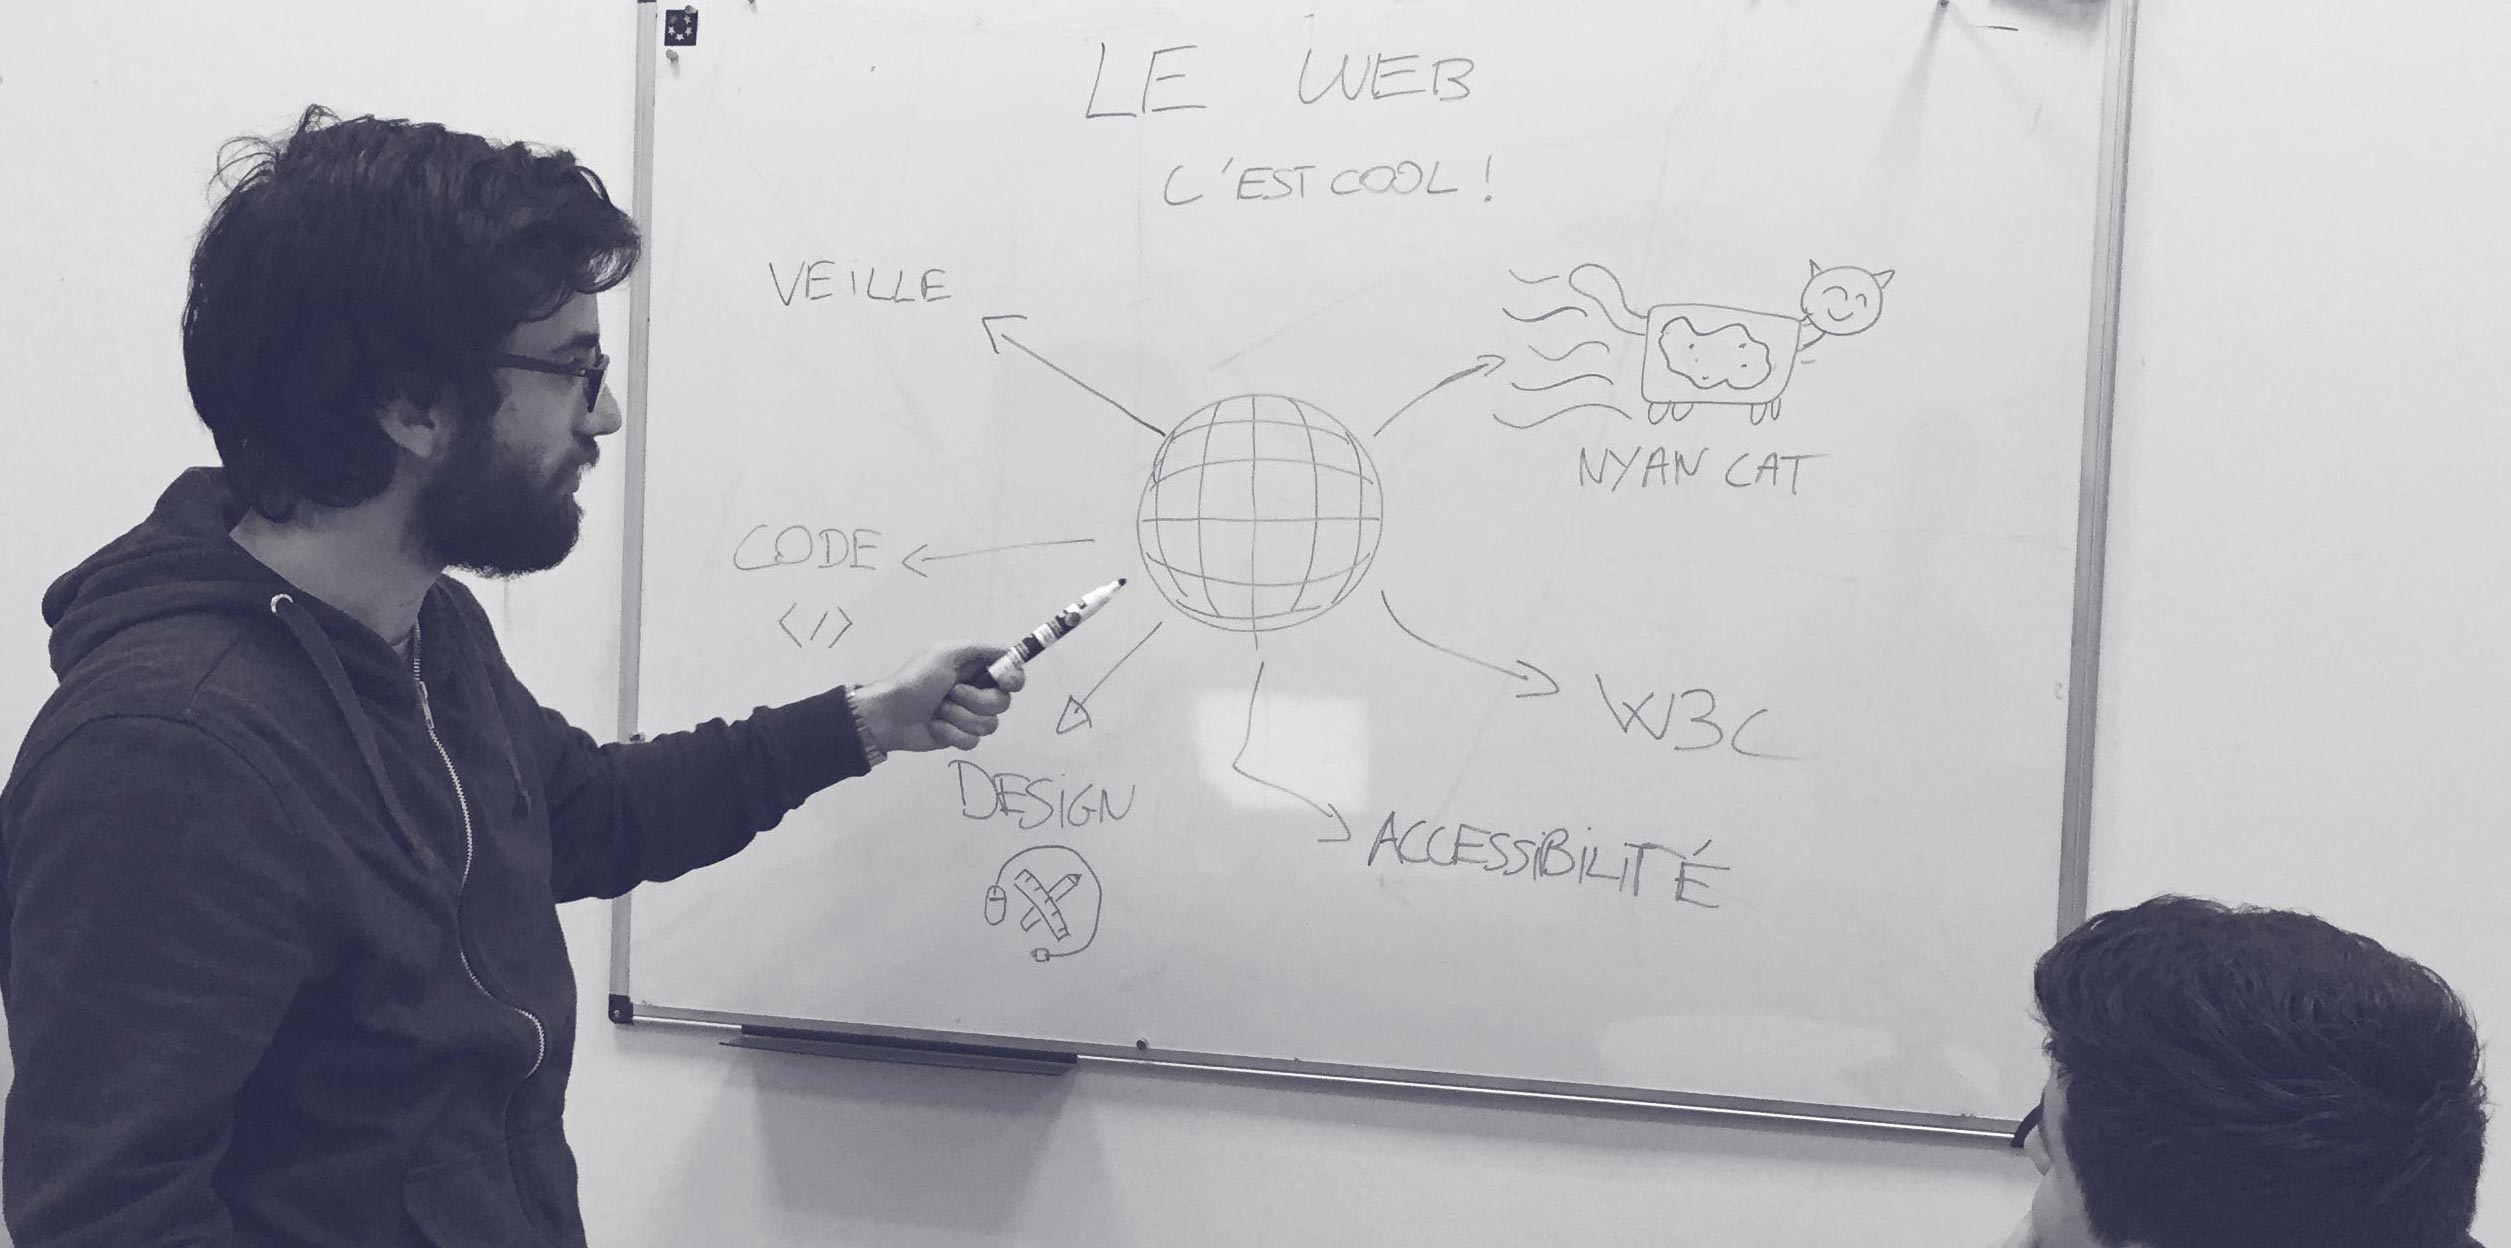 LE WEB
C'EST COOL !
VEiLLE
NYAN CAT
CODE
</>
W3C
DESiGN
ACCESSiBiLiTÉ